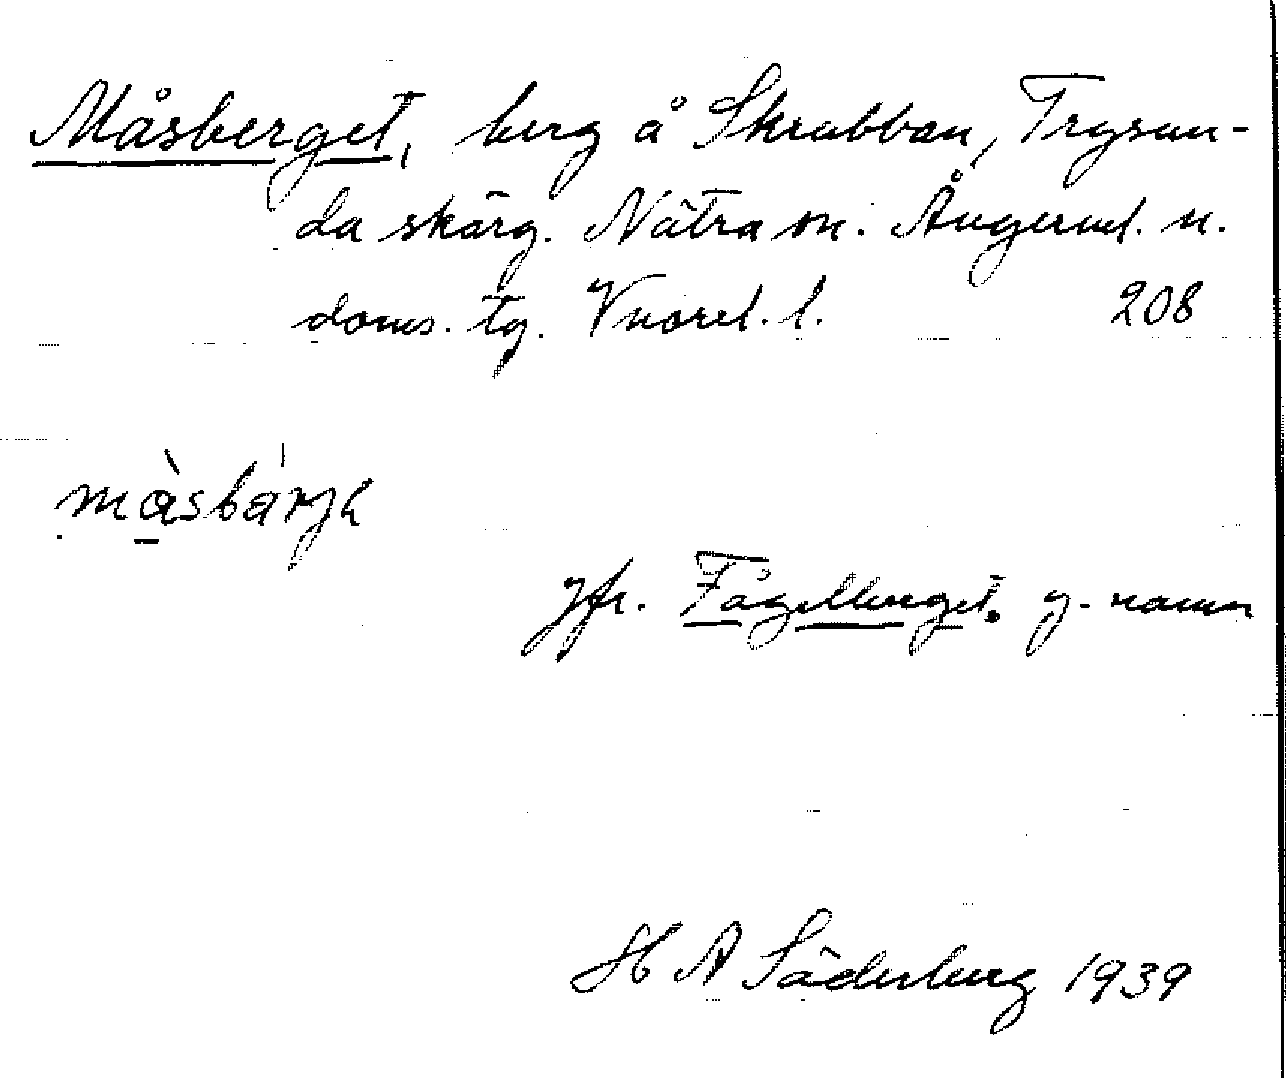 Måsberget, berg å Skrubban, Trysun-
da skärg. Nätra sn. Ångerml. n.
doms. tg. Vnorrl. l. 208
màsbárjk
Jfr. Fågelberget. y. namn
H A Söderberg 1939